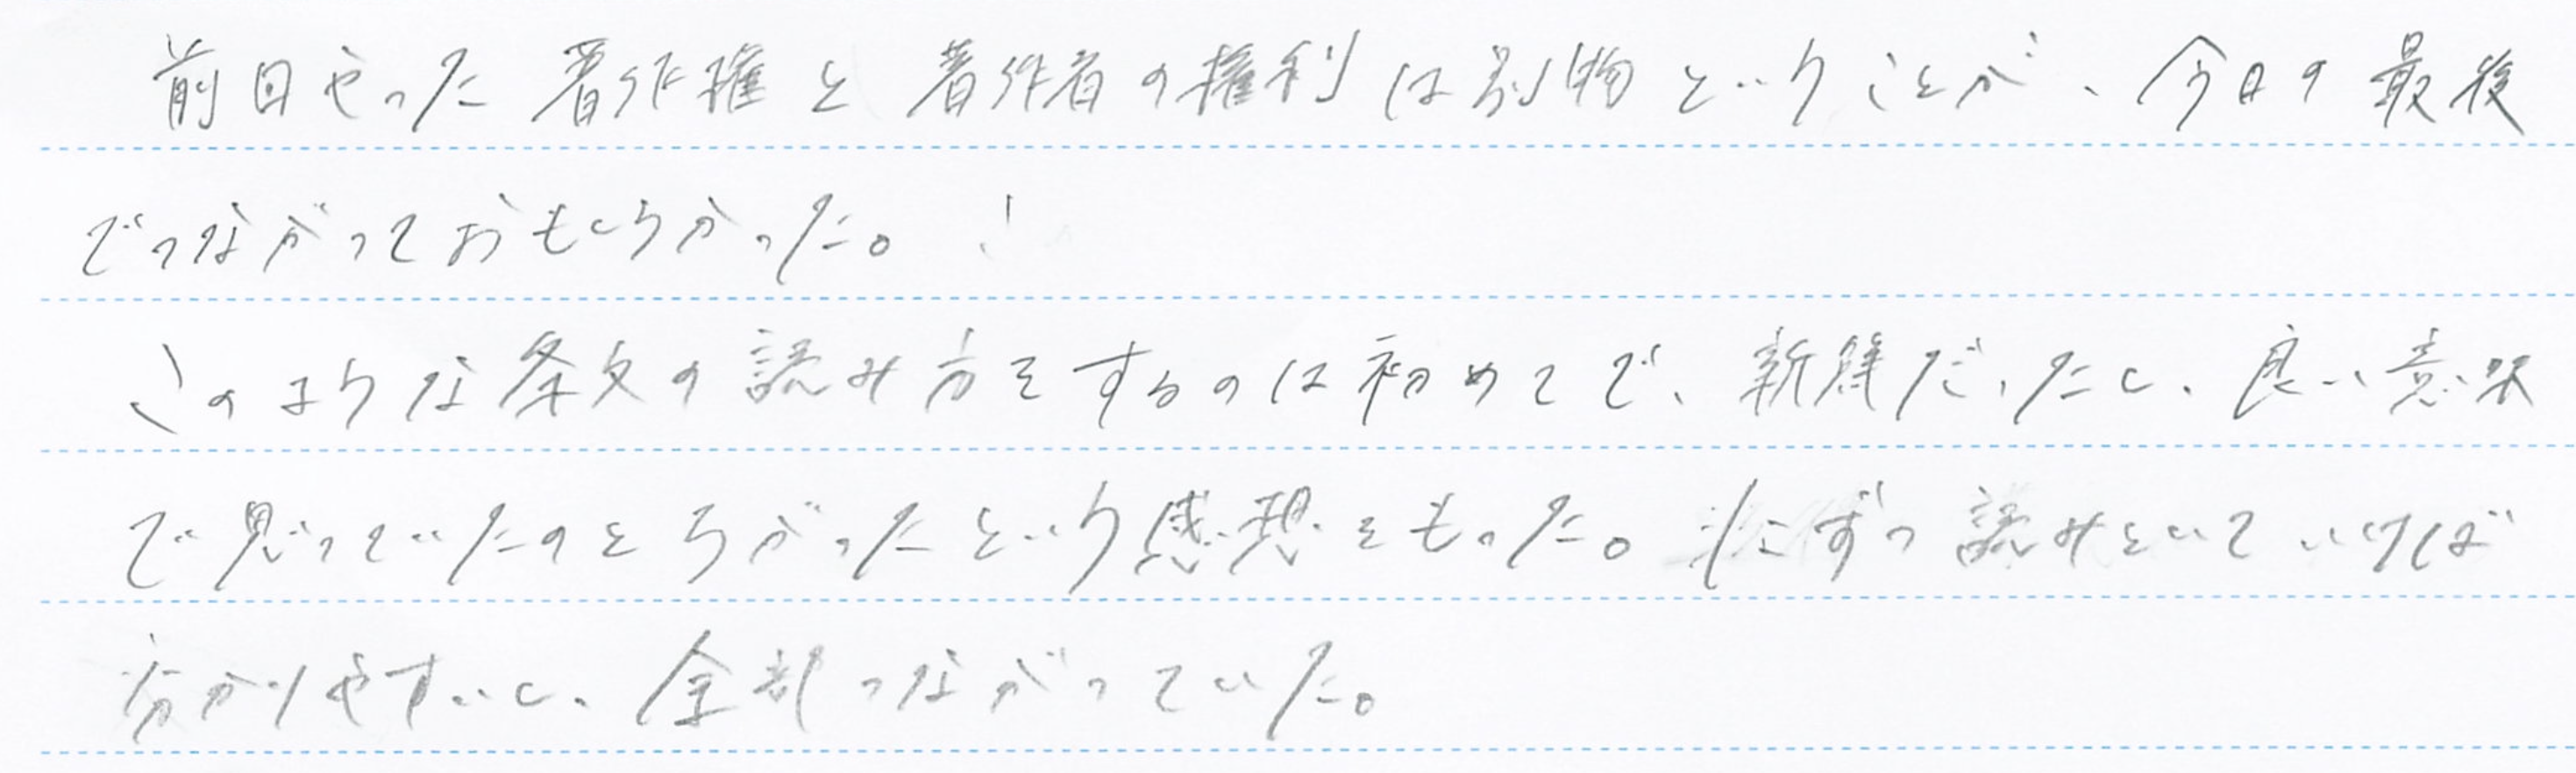 前回やった著作権と著作者の権利は別物ということが、今日の最後
でつながっておもしろかった。
このような条文の読み方をするのは初めてで、新鮮だったし、良い意味
で思っていたのとちがったという感想をもった。 ずつ読みといていけば
分かりやすいし、全部つながっていた。